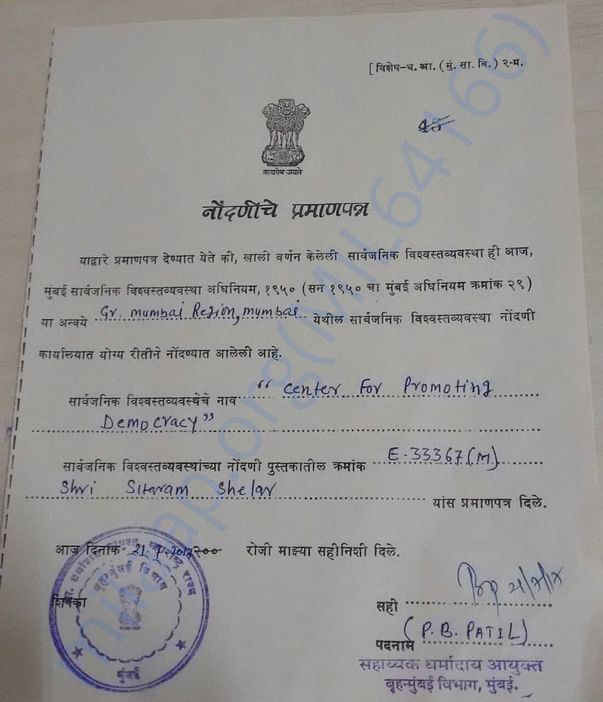 [ विशेष-ध. आ. (मुं. सा. वि.) २-म.
सत्यमेव जयते
नोंदणीचे प्रमाणपत्र
याद्वारे प्रमाणपत्र देण्यात येते की, खाली वर्णन केलेली सार्वजनिक विश्वस्तव्यवस्था ही आज,
मुंबई सार्वजनिक विश्वस्तव्यवस्था अधिनियम, १९५० (सन १९५० चा मुंबई अधिनियम क्रमांक २९)
या अन्वये Gr. Mumbai Region, mumbai येथील सार्वजनिक विश्वस्तव्यवस्था नोंदणी
कार्यालयात योग्य रीतीने नोंदण्यात आलेली आहे.
सार्वजनिक विश्वस्तव्यवस्थेचे नाव “ Center For Promoting
Democracy ”
सार्वजनिक विश्वस्तव्यवस्थांच्या नोंदणी पुस्तकातील क्रमांक E-33367(M)
Shri Sitaram Shelar यांस प्रमाणपत्र दिले.
आज दिनांक 21 रोजी माझ्या सहीनिशी दिले.
शिक्का
बृहन्मुंबई विभाग
मुंबई
सही
(P. B. PATIL)
पदनाम
सहाय्यक धर्मादाय आयुक्त
बृहन्मुंबई विभाग, मुंबई.
milaap.org(MIL64166)